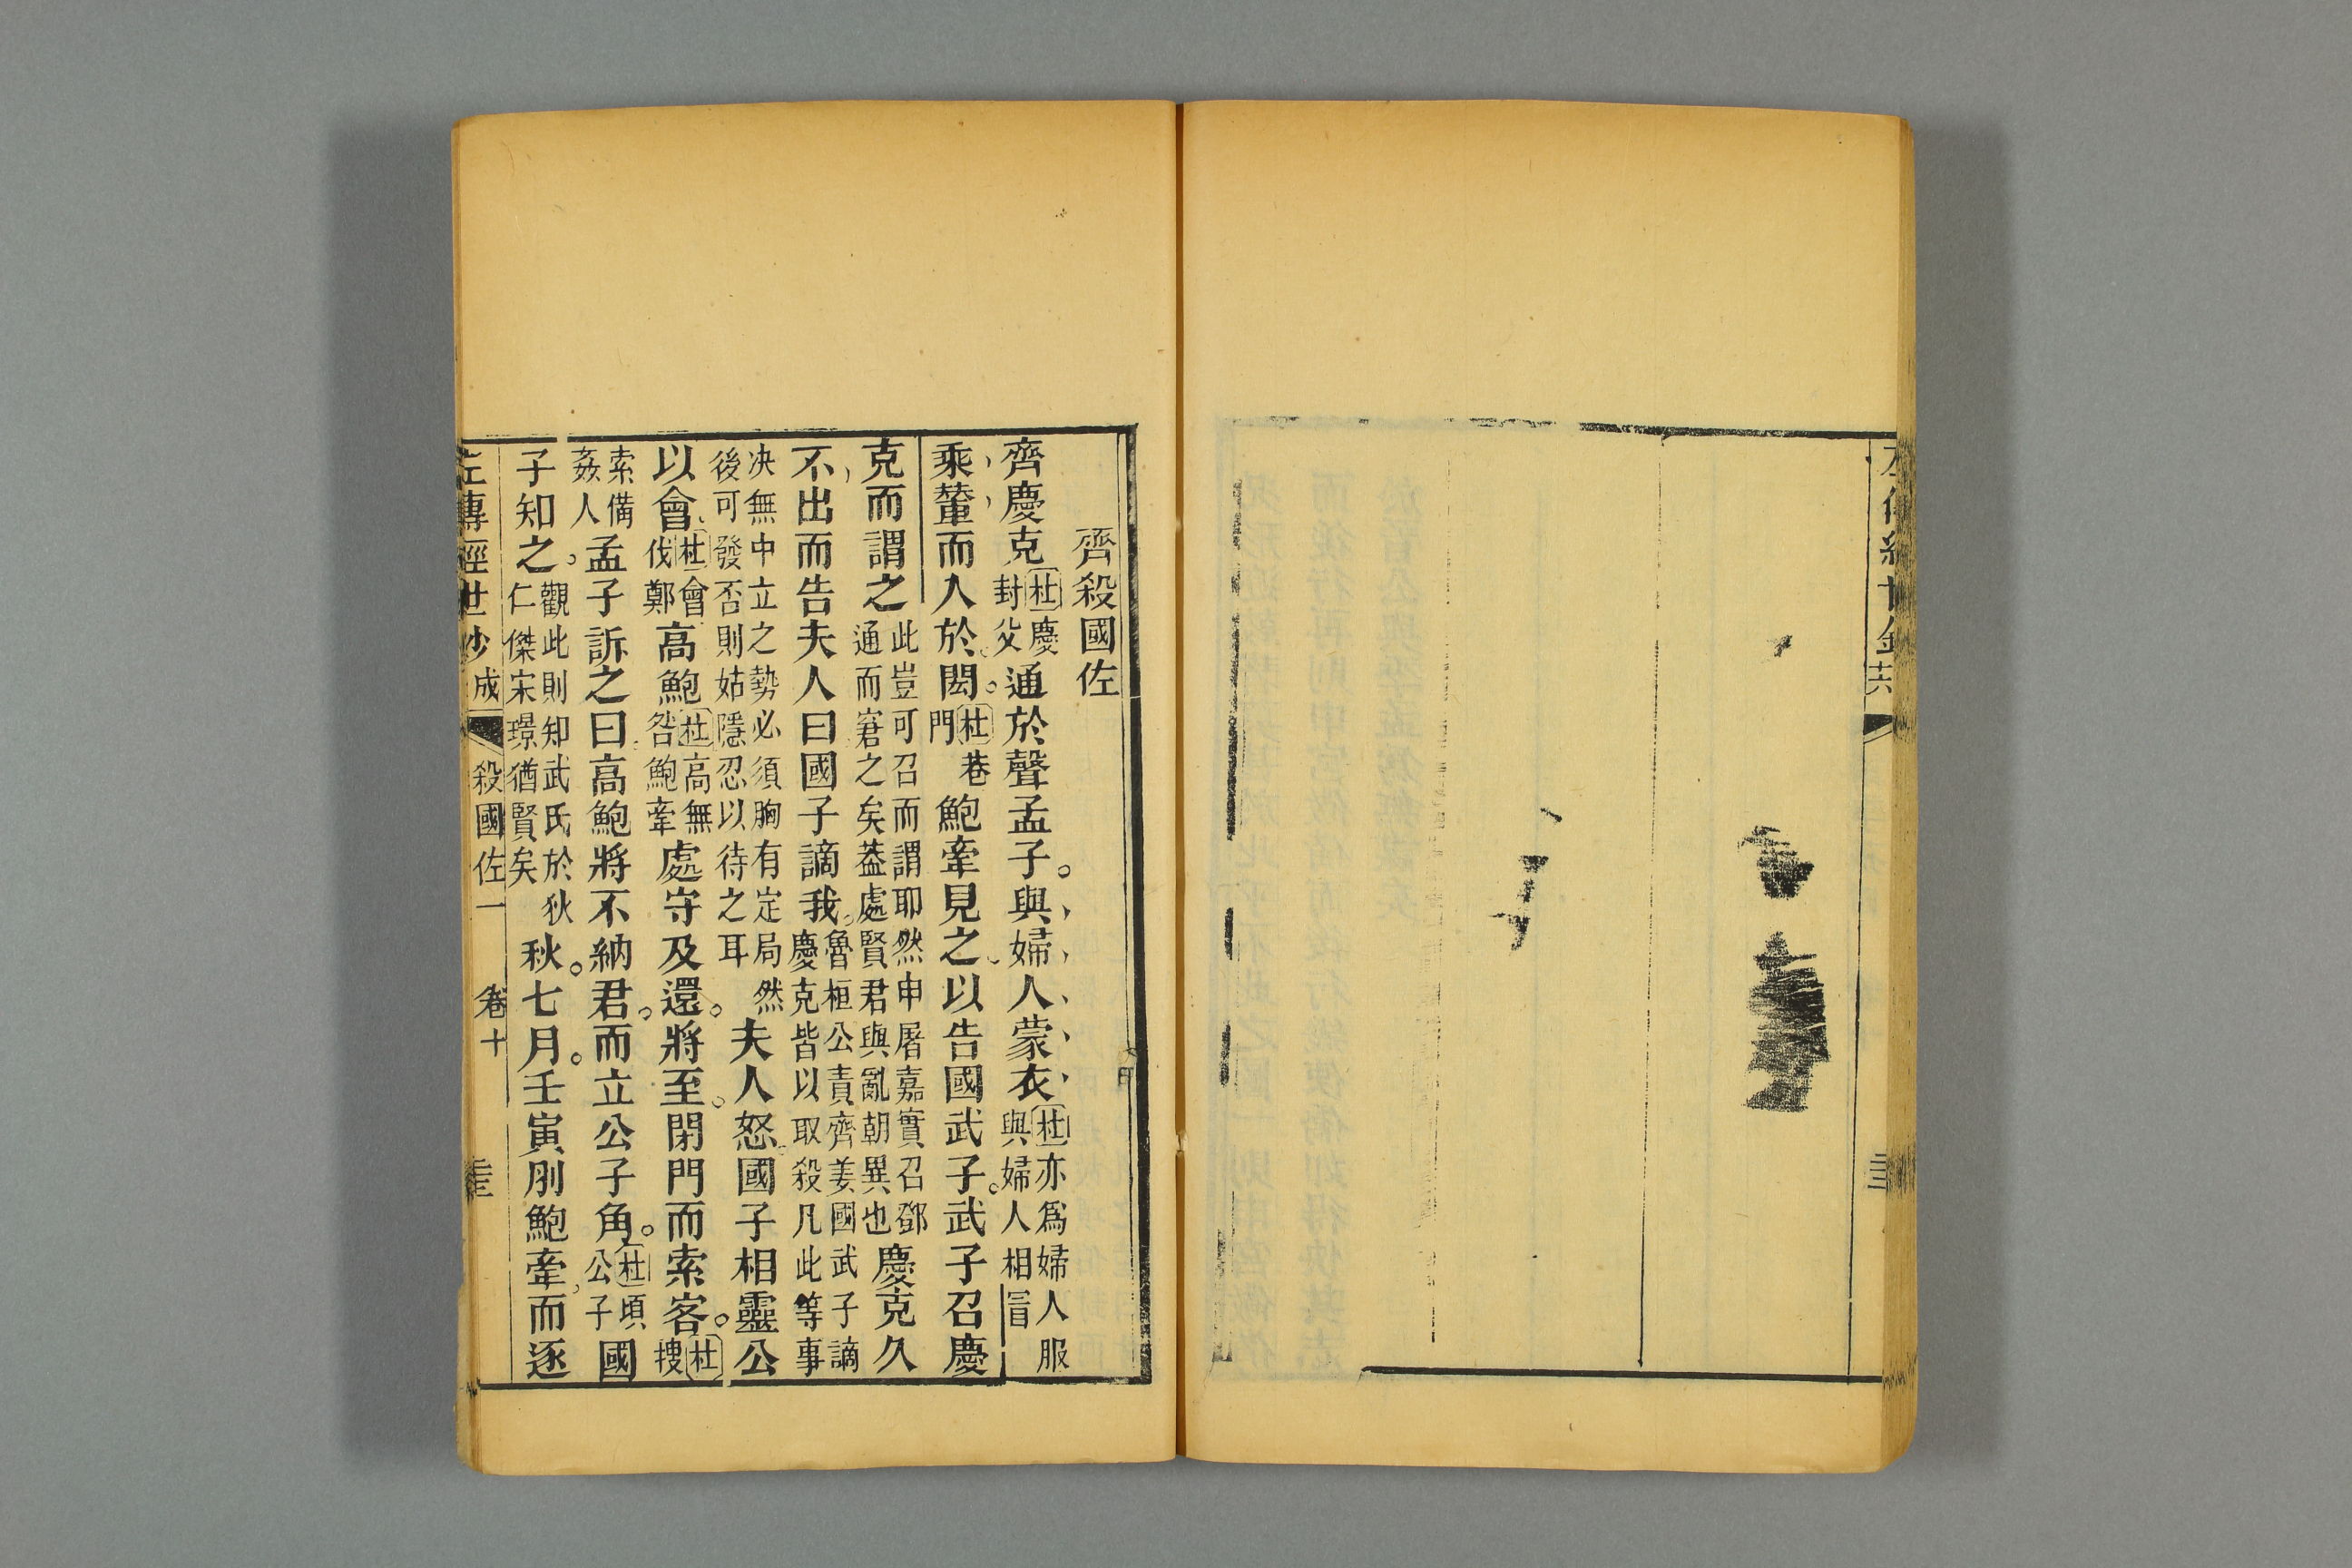 齊殺國佐
齊慶克杜慶封父通於聲孟子。與婦人蒙衣杜亦爲婦人服與婦人相冒
乘輦而入於閎。杜巷門鮑牽見之以告國武子。武子召慶
克而謂之此豈可召而謂耶然申屠嘉實召鄧通而窘之矣葢處賢君與亂朝異也慶克久
不出而告夫人曰國子謫我。魯桓公責齊姜國武子謫慶克皆以取殺凡此等事
决無中立之勢必須胸有定局然後可發否則姑隱忍以待之耳夫人怒國子相靈公
以會杜會伐鄭高鮑杜高無咎鮑牽處守及還。將至。閉門而索客。杜搜
索備姦人孟子訴之曰高鮑將不納君。而立公子角。杜頃公子國
子知之。觀此則知武氏於狄仁傑宋璟猶賢矣秋。七月。壬寅刖鮑牽而逐
左傳經世鈔 成 殺國佐一 卷十